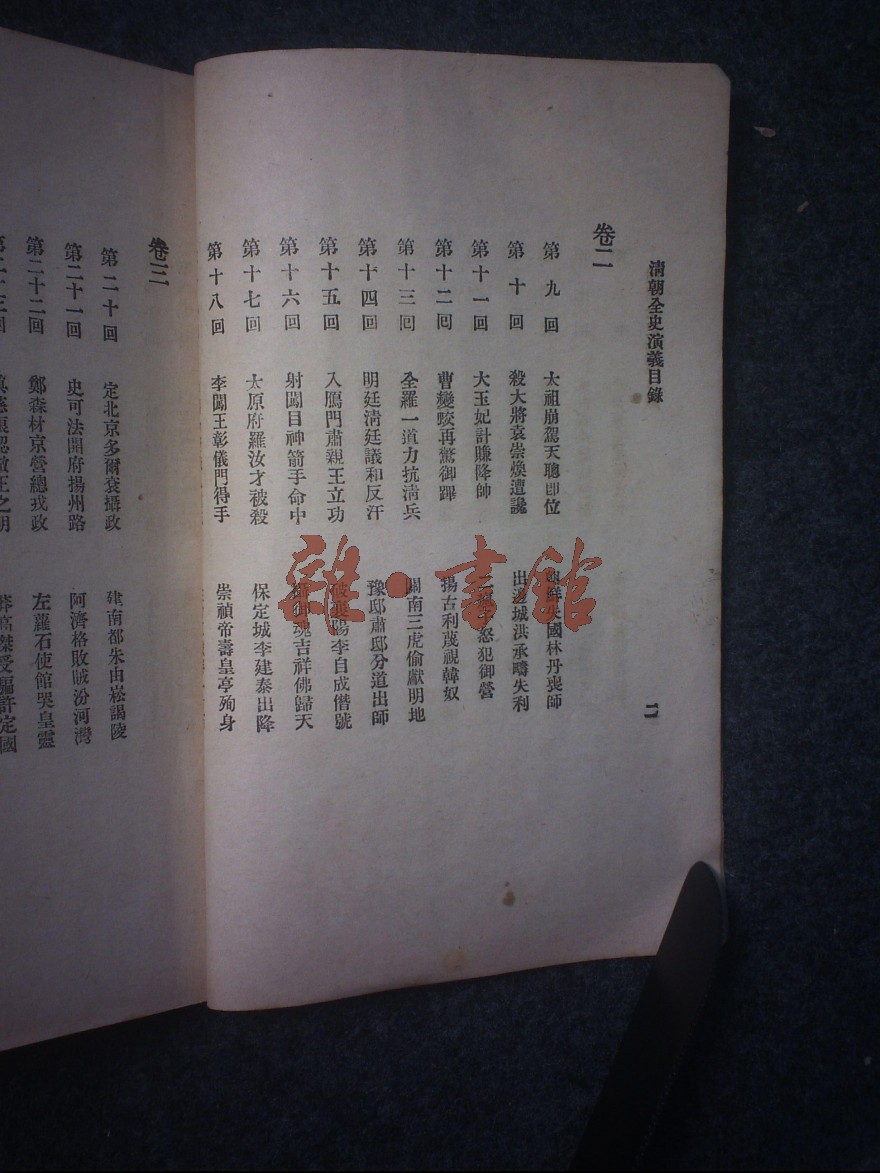 清朝全史演義目錄
二
卷二
第九回 太祖崩駕天聰即位 朝鮮失國林丹喪師
第十回 殺大將袁崇煥遭讒 出邊城洪承疇失利
第十一回 大玉妃計賺降帥 怒犯御營
第十二回 曹變蛟再驚御蹕 揚古利蔑視韓奴
第十三回 全羅一道力抗清兵 三虎偷獻明地
第十四回 明廷清廷議和反汗 豫邸肅邸分道出師
第十五回 入鴈門肅親王立功 破襄陽李自成僭號
第十六回 射闖目神箭手命中 御魂吉祥佛歸天
第十七回 太原府羅汝才被殺 保定城李建泰出降
第十八回 李闖王彰儀門得手 崇禎帝壽皇亭殉身
卷三
第二十回 定北京多爾袞攝政 建南都朱由崧謁陵
第二十一回 史可法開府揚州路 阿濟格敗賊汾河灣
第二十二回 鄭森材京營總戎政 左蘿石使館哭皇靈
第二十三回 高傑受騙許定國
雜·書館